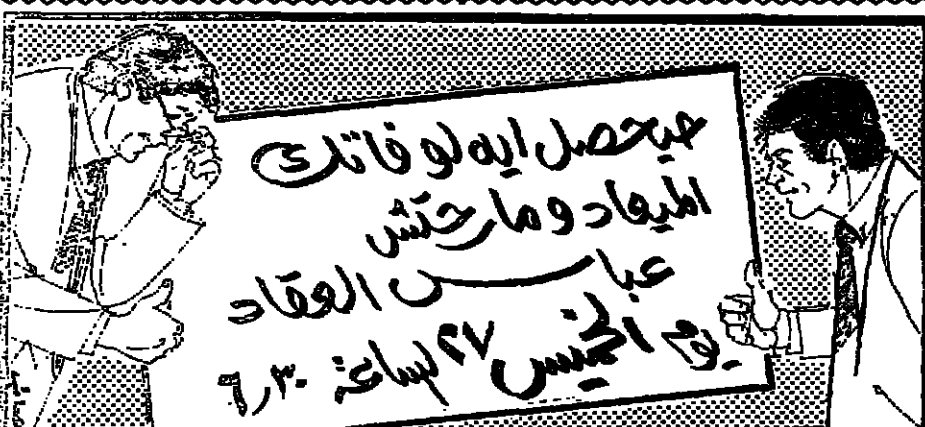 حيحصل ايه لو فاتك
الميعاد ومارحتش
عباس العقاد
يوم الخميس ٢٧ لساعة ٦,٣٠